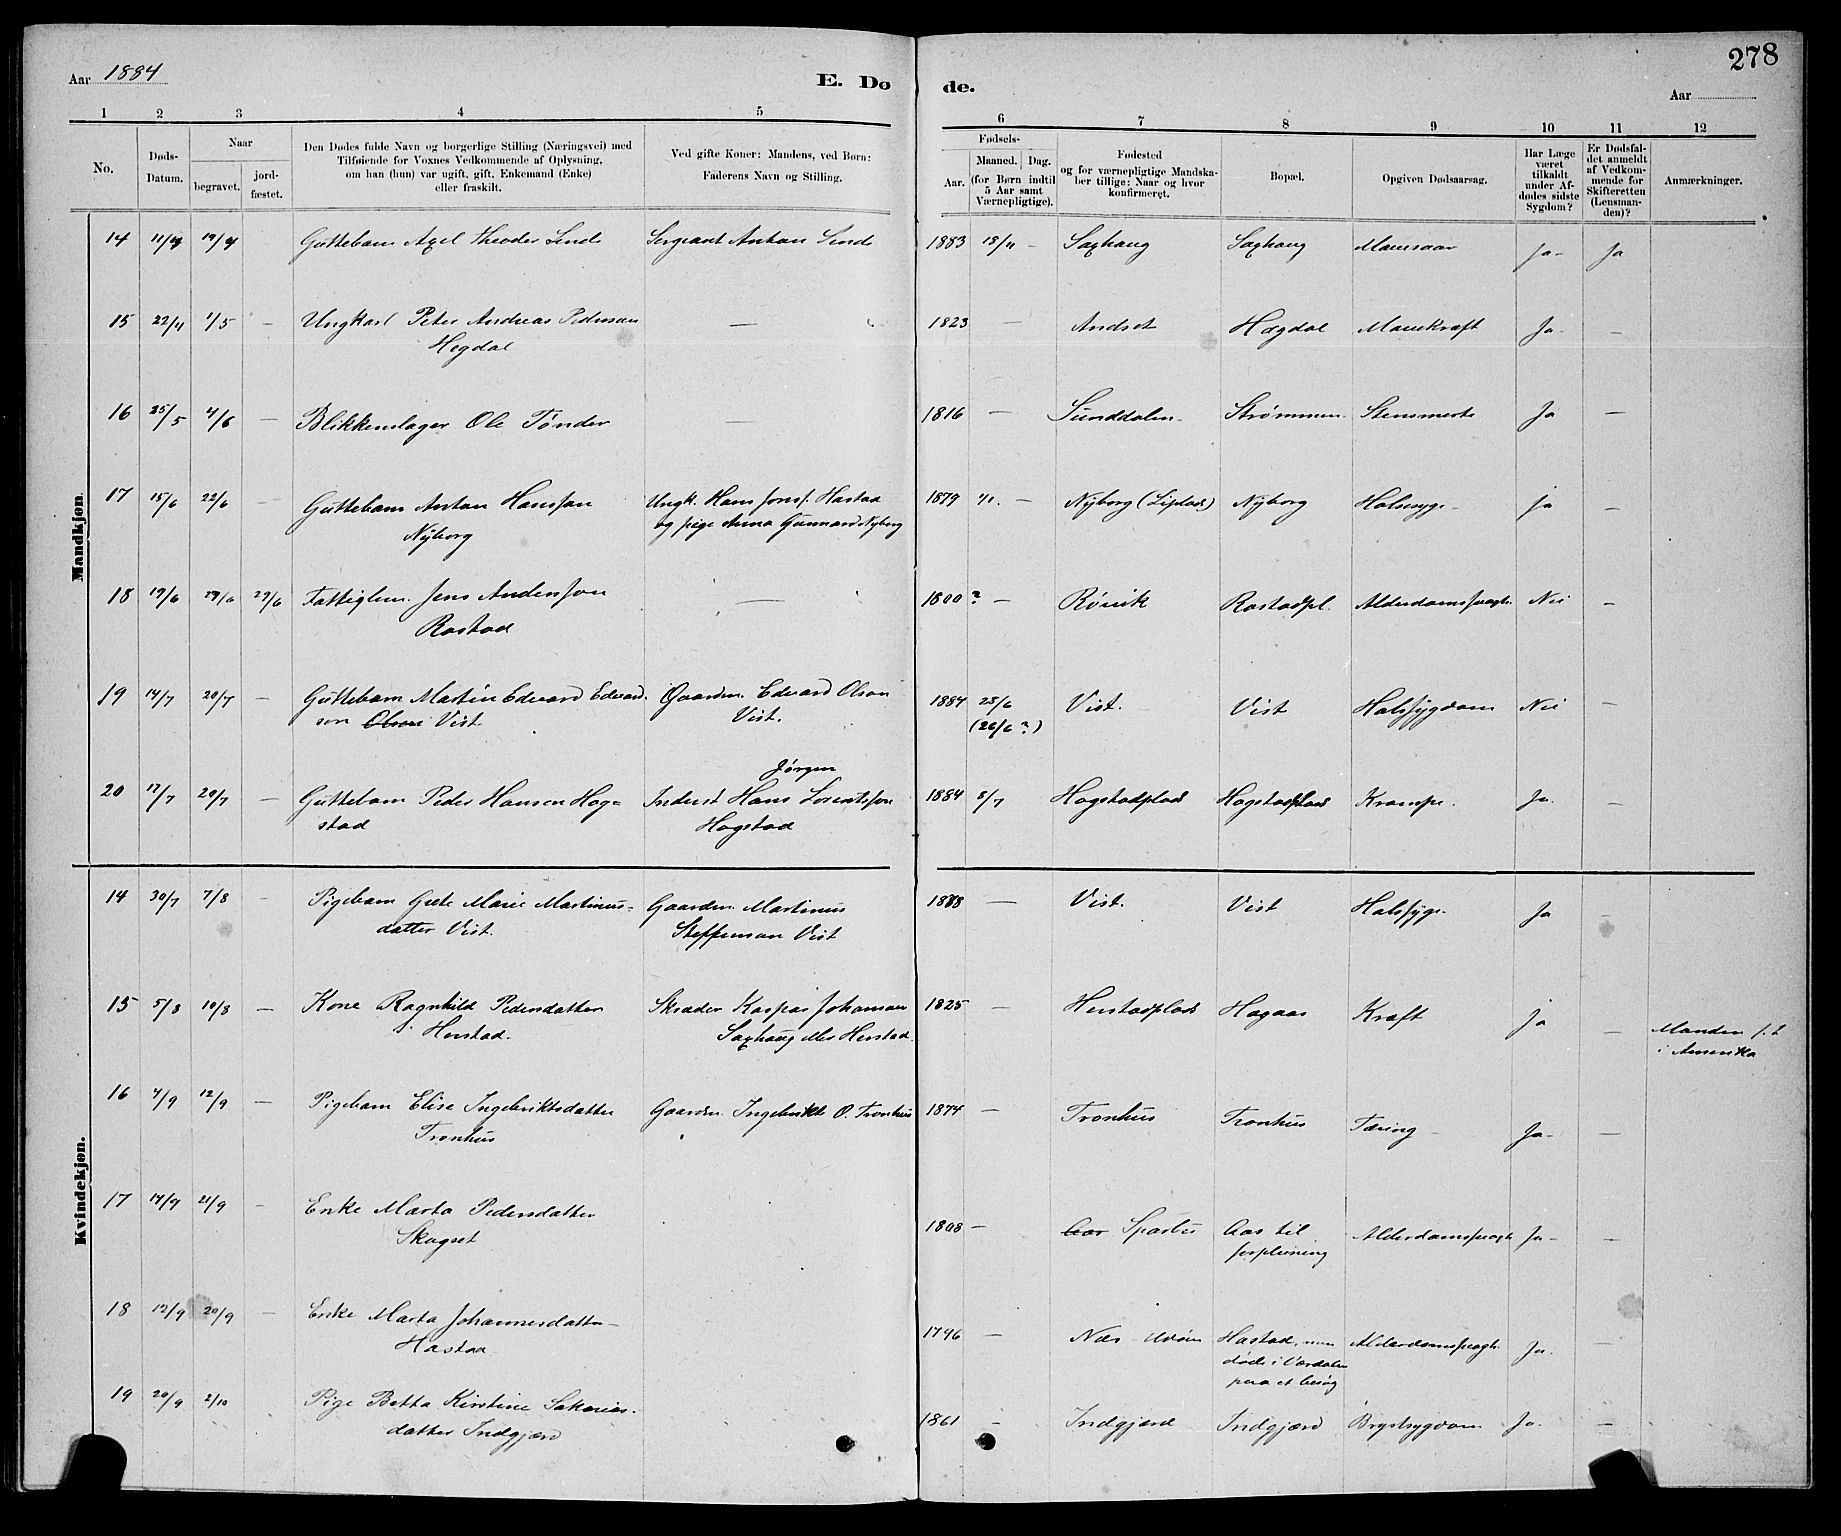 Aar 1884
E. Dø
de.
278
Aar
1 2 3 4 5 6 7 8 9 10 11 12
No.
Døds-
Datum.
Naar
begravet.
jord-
fæstet.
Den Dødes fulde Navn og borgerlige Stilling (Næringsvei) med
Tilføiende for Voxnes Vedkommende af Oplysning,
om han (hun) var ugift, gift, Enkemand (Enke)
eller fraskilt.
Ved gifte Koner: Mandens, ved Børn:
Faderens Navn og Stilling.
Fødsels-
Aar.
Maaned. Dag.
(for Børn indtil
5 Aar samt
Værnepligtige).
Fødested
og for værnepligtige Mandska-
ber tillige: Naar og hvor
konfirmeret.
Bopæl.
Opgiven Dødsaarsag.
Har Læge
været
tilkaldt
under Af-
dødes sidste
Sygdom?
Er Dødsfal-
det anmeldt
af Vedkom-
mende for
Skifteretten
(Lensman-
den)?
Anmærkninger.
Mandkjøn.
14 11/4 19/4 Guttebarn Axel Theodor Lind Sergeant Anton Lind 1883 18/11 - Saxhaug Saxhaug Mavesaar Ja- Ja
15 22/4 1/5 — Ungkarl Peter Andreas Pedersen — 1823 — Andset Hogdal Mavekræft Ja. —
Hegdal
16 25/5 4/6 — Blikkenslager Ole Tønder — 1816 — Sunddalen. Strømmen. Stensmerte Ja —
17 15/6 22/6 — Guttebarn Anton Hansson Ungk. Hans Jonss. Hastad 1879 — Nyborg Nyborg Halssyge- ja —
Nyborg og pige Anna Nyborg
18 19/6 29/6 29/6 Fattiglem. Jens Anderson — 1800 ? — Rørvik Rostadpl. Nei —
Rostad
19 14/7 20/7 — Guttebarn Martin Edvard Edvard- Gaardm. Edvard Olson 1884 25/6 Vist. Vist Halssygdom Nei —
son Olsen Vist. Vist. (26/6 ?)
Jørgen
20 17/7 20/7 — Guttebarn Peder Hansen Hog= Inderst Hans Lorentsson 1884 8/7 Hogstadplads Hogstadplads Krampe. Ja. —
stad Hogstad
Kvindekjøn.
14 30/7 7/8 — Pigebarn Grete Marie Martinus- Gaardm. Martinus — Vist. Vist Halssyge. Ja —
datter Vist. Steffenson Vist
15 5/8 10/8 — Kone Ragnhild Pedersdatter Skræder Kaspar Johansen 1825 — Herstadplads Hogaas Kræft ja — Manden f. t.
Herstad. Saxhaug eller Herstad. i Amerika
16 4/9 12/9 — Pigebarn Elise Ingebriktsdatter Gaardm. Ingebrikt O. Tronhus 1874 — Tronhus Tronhus Tæring — Ja- —
Tronhus
17 14/9 21/9 — Enke Marta Pedersdatter
Skogset 1808 — Aas til Ja- —
forpleining
18 12/9 20/9 — Enke Marta Johannesdatter 1796 — Næs Hastad, men Ja. —
Hastad døde i Værdalen
paa et besøg
19 20/9 2/10 Pige Betta Kirstine Sakarias- 1861 - Indgjærd Indgjærd Brystsygdom Ja. —
datter Indgjærd